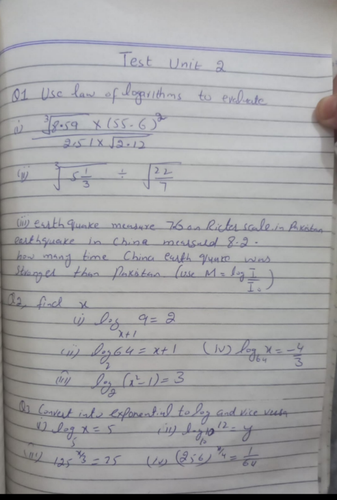 Test Unit 2
Q1 Use law of logarithms to evaluate
i) ∛8.59 × (55.6)² / 2.51 × √2.12
ii) ⁵√5 1/3 ÷ √22/7
(iii) earthquake measure 7.6 on Ricter scale in Pakistan
earthquake in China mersured 8.2.
how many time China earth quake was
stronger than Pakistan (use M = log I/I₀)
Q2 find x
i) log_{x+1} 9 = 2
(ii) log_2 64 = x+1 (iv) log_{64} x = -4/3
(iii) log_2 (x²-1) = 3
Q3 Convert into exponential to log and vice versa
i) log_5 x = 5 (ii) log_{10} 12 = y
(iii) 125^{x/3} = 25 (iv) (256)^{x/4} = 1/64